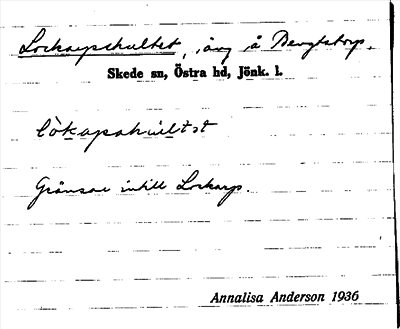 Lockarpshultet, äng å Bengtstorp.
Skede sn, Östra hd, Jönk. l.
Gränsar intill Lockarp.
Annalisa Anderson 1936